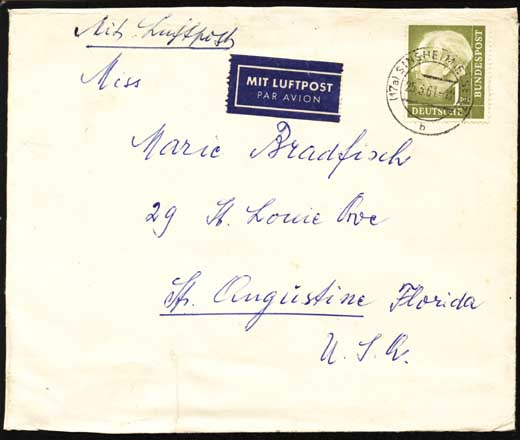 Mit Luftpost
MIT LUFTPOST
PAR AVION
Miss
Marie Bradfisch
29 St. Louie Ave
St. Augustine Florida
U.S.A.
(17a) SINSHEIM
25.3.61
b
DEUTSCHE
BUNDESPOST